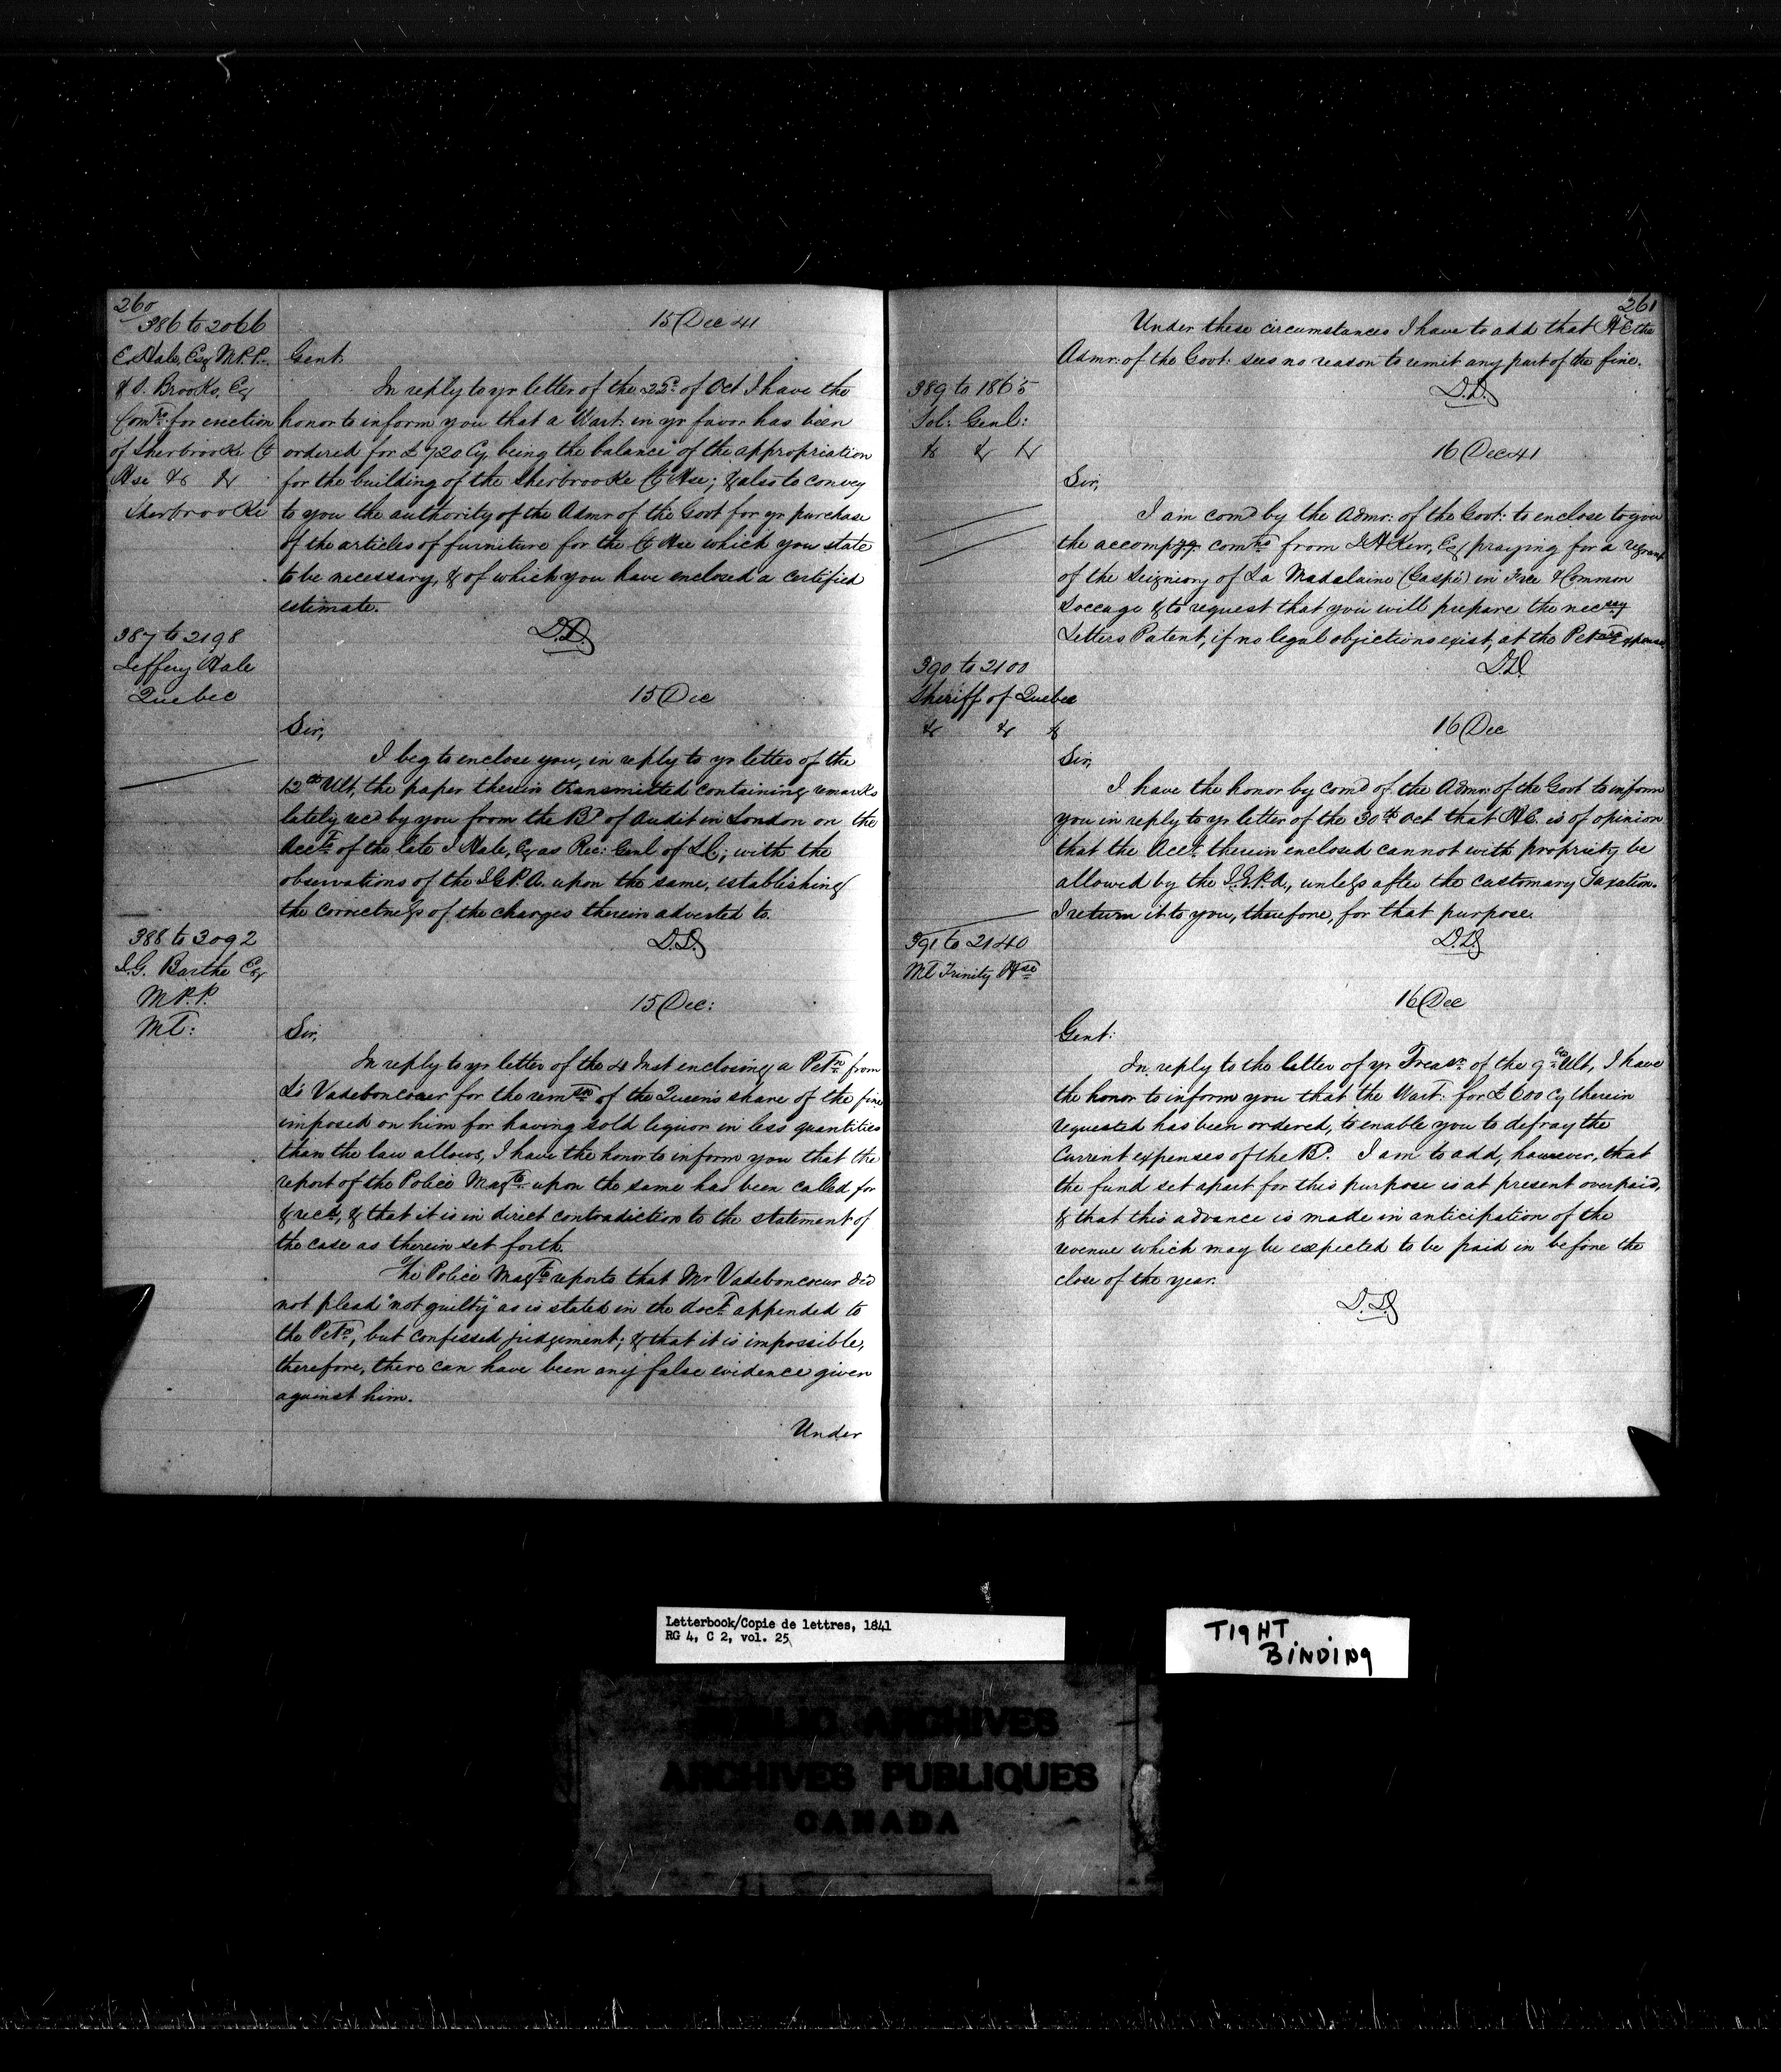 260
386 to 2066
E. Hale, Esq M.P.P.
& S. Brooks, Esq
Comrs: for erection
of Sherbrooke Ct
Hse &c &c
Sherbrooke
15 Dec 41
Gent:
In reply to yr letter of the 25th of Oct I have the
honor to inform you that a Wart: in yr favor has been
ordered for £720 Cy, being the balance of the appropriation
for the building of the Sherbrooke Ct Hse; & also to convey
to you the authority of the Admr of the Govt for yr purchase
of the articles of furniture for the Ct Hse which you state
to be necessary, & of which you have enclosed a certified
estimate.
D.D.
387 to 2198
Jeffery Hale
Quebec
15 Dec
Sir,
I beg to enclose you, in reply to yr letter of the
12th Ult, the paper therein transmitted containing remarks
lately recd by you from the Bd of Audit in London on the
Accts of the late J Hale, Esq as Rec: Genl of L C; with the
observations of the I.G.P.A. upon the same, establishing
the correctness of the charges therein adverted to.
D.D.
388 to 3092
J.G. Barthe Esq
M.P.P.
Ml:
15 Dec:
Sir,
In reply to yr letter of the 4 Inst enclosing a Petn from
Ls Vadeboncoeur for the remsn of the Queen's share of the fine
imposed on him for having sold liquor in less quantities
than the law allows, I have the honor to inform you that the
report of the Police Magte upon the same has been called for
& recd, & that it is in direct contradiction to the statement of
the case as therein set forth.
The Police Magte reports that Mr Vadeboncoeur did
not plead "not guilty" as is stated in the doct appended to
the Petn, but confessed judgement; & that it is impossible,
therefore, there can have been any false evidence given
against him.
Under
261
Under these circumstances I have to add that H E the
Admr: of the Govt: sees no reason to remit any part of the fine.
D.D.
389 to 1865
Sol: Genl:
&c &c &c
16 Dec 41
Sir,
I am comd by the Admr: of the Govt: to enclose to you
the accompyg comns from J H Kerr, Esq praying for a regrant
of the Seigniory of La Madalaine (Gaspé) in Free & Common
Soccage & to request that you will prepare the necsey
Letters Patent, if no legal objections exist, at the Petrs Expense
D.D.
390 to 2100
Sheriff of Quebec
&c &c &c
16 Dec
Sir,
I have the honor by comd of the Admr: of the Govt to inform
you in reply to yr letter of the 30th Oct that H.E. is of opinion
that the Acct therein enclosed cannot with propriety be
allowed by the I.G.P.A., unless after the customary Taxation.
I return it to you, therefore, for that purpose.
D.D.
391 to 2140
Ml Trinity Hse
16 Dec
Gent:
In reply to the letter of yr Treasr of the 9th Ult, I have
the honor to inform you that the Wart: for £600 Cy therein
requested has been ordered, to enable you to defray the
Current expenses of the Bd. I am to add, however, that
the fund set apart for this purpose is at present overpaid,
& that this advance is made in anticipation of the
revenue which may be expected to be paid in before the
close of the year.
D.D.
Letterbook/Copie de lettres, 1841
RG 4, C 2, vol. 25
TIGHT
BINDING
PUBLIC ARCHIVES
ARCHIVES PUBLIQUES
CANADA